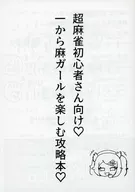 超麻雀初心者さん向け♡
一から麻ガールを楽しむ攻略本♡